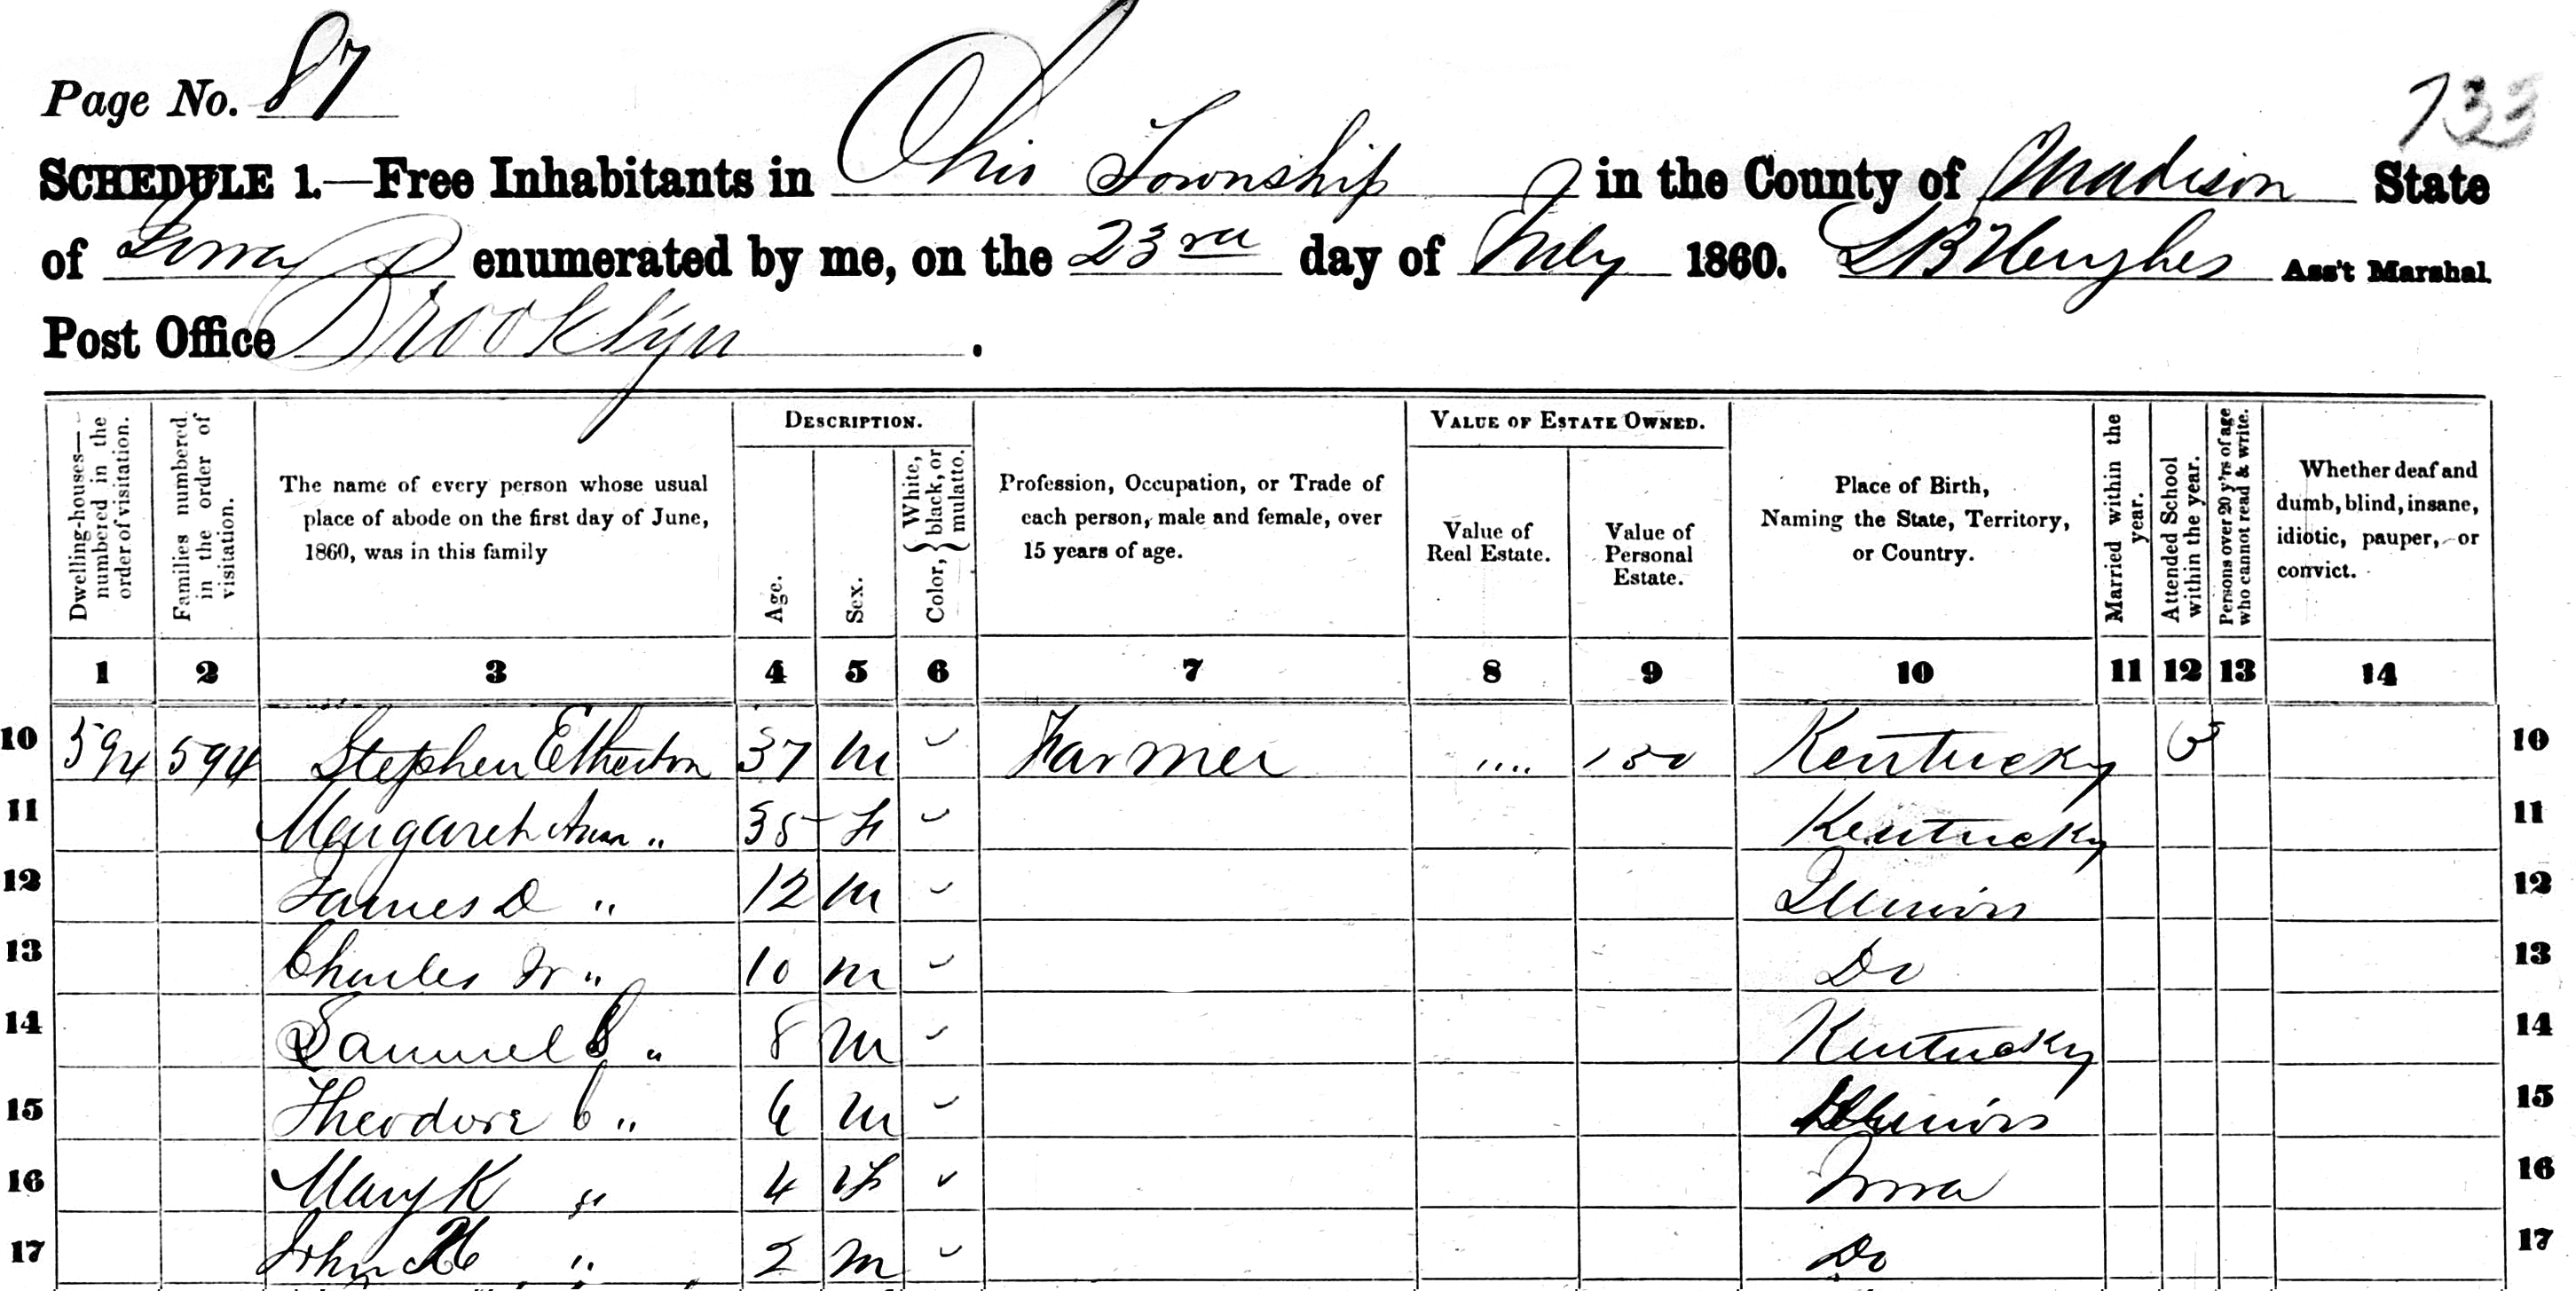 Page No. 87
733
SCHEDULE 1.—Free Inhabitants in Ohio Township in the County of Madison State
of Iowa enumerated by me, on the 23rd day of July 1860. L B Hughes Ass't Marshal.
Post Office Brooklyn .
Dwelling-houses—numbered in the order of visitation.
Families numbered in the order of visitation.
The name of every person whose usual place of abode on the first day of June, 1860, was in this family
DESCRIPTION.
Age.
Sex.
Color, { White, black, or mulatto.
Profession, Occupation, or Trade of each person, male and female, over 15 years of age.
VALUE OF ESTATE OWNED.
Value of Real Estate.
Value of Personal Estate.
Place of Birth, Naming the State, Territory, or Country.
Married within the year.
Attended School within the year.
Persons over 20 y'rs of age who cannot read & write.
Whether deaf and dumb, blind, insane, idiotic, pauper, or convict.
1 2 3 4 5 6 7 8 9 10 11 12 13 14
10 594 594 Stephen Etherton 37 m Farmer .... 150 Kentucky 10
11 Margaret Ann " 35 f Kentucky 11
12 James D " 12 m Illinois 12
13 Charles " 10 m Do 13
14 Samuel " 8 m Kentucky 14
15 Theodore C " 6 m Illinois 15
16 Mary K " 4 f Iowa 16
17 John " 2 m Do 17